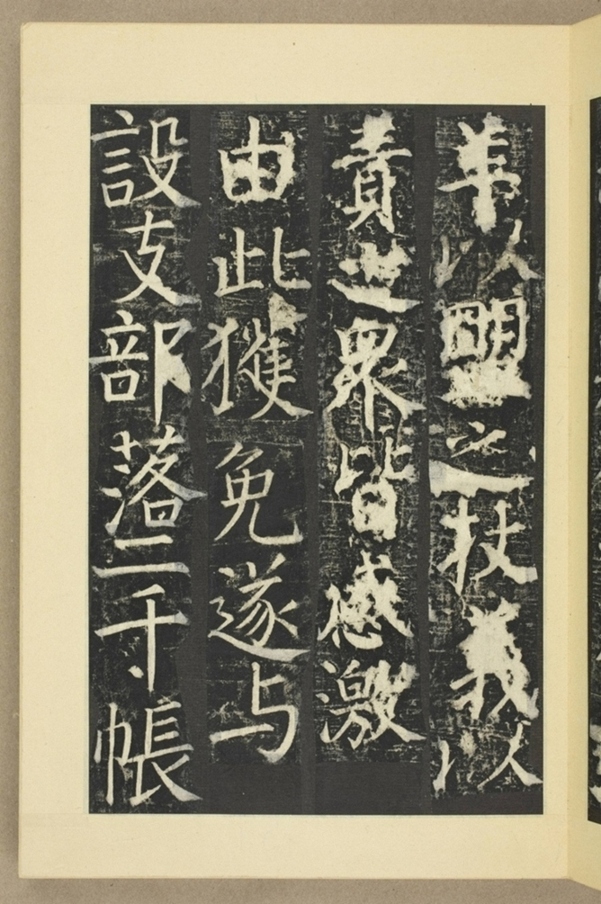 羊以盟之杖義以
責之衆皆感激
由此獲免遂与
設支部落二千帳